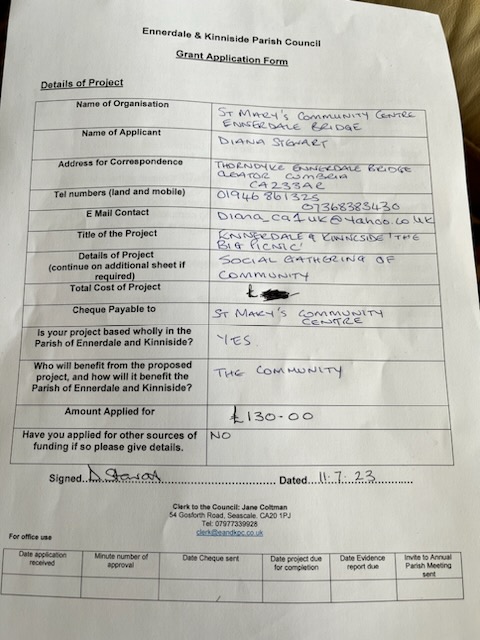 Ennerdale & Kinniside Parish Council
Grant Application Form
Details of Project
Name of Organisation
ST MARY'S COMMUNITY CENTRE
ENNERDALE BRIDGE
Name of Applicant
DIANA STEWART
Address for Correspondence
THORNDYKE ENNERDALE BRIDGE
CLEATOR CUMBRIA
CA233AR
Tel numbers (land and mobile)
01946 861325
07368383430
E Mail Contact
Diana_ca1uk@yahoo.co.uk
Title of the Project
ENNERDALE & KINNISIDE 'THE
BIG PICNIC'
Details of Project
(continue on additional sheet if
required)
SOCIAL GATHERING OF
COMMUNITY
Total Cost of Project
£
Cheque Payable to
ST MARY'S COMMUNITY
CENTRE
Is your project based wholly in the
Parish of Ennerdale and Kinniside?
YES.
Who will benefit from the proposed
project, and how will it benefit the
Parish of Ennerdale and Kinniside?
THE COMMUNITY
Amount Applied for
£130-00
Have you applied for other sources of
funding if so please give details.
NO
Signed..D Stewart......Dated...11.7.23............
Clerk to the Council: Jane Coltman
54 Gosforth Road, Seascale, CA20 1PJ
Tel: 07977339928
clerk@eandkpc.co.uk
For office use
Date application
received
Minute number of
approval
Date Cheque sent
Date project due
for completion
Date Evidence
report due
Invite to Annual
Parish Meeting
sent